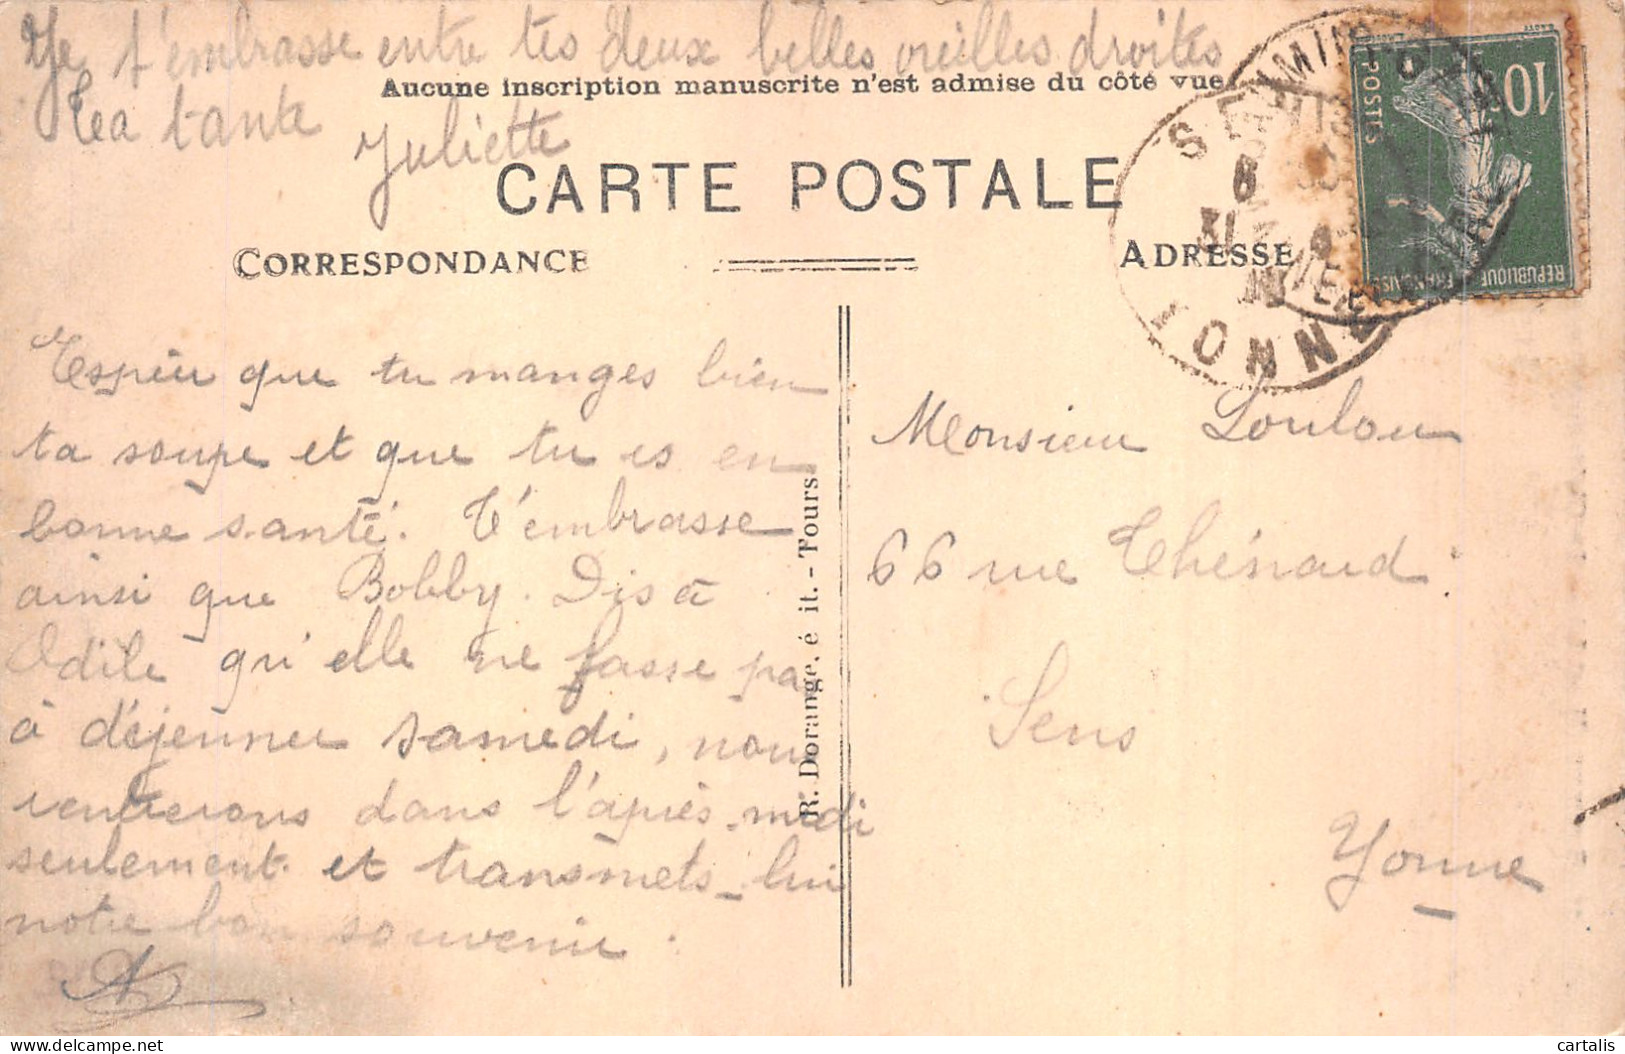 Je t'embrasse entre tes deux belles oreilles droites
Aucune inscription manuscrite n'est admise du côté vue
Ta tante
Juliette
CARTE POSTALE
CORRESPONDANCE
ADRESSE
10
POSTES
REPUBLIQUE FRANÇAISE
YONNE
Espère que tu manges bien
ta soupe et que tu es en
bonne santé. T'embrasse
ainsi que Bobby. Dis à
Odile qu'elle ne fasse pas
à déjeuner samedi, nous
rentrerons dans l'après-midi
seulement et transmets-lui
notre bon souvenir.
R. Dorange, é it. - Tours
Monsieur Loulou
66 rue Thénard
Sens
Yonne
cartalis
delcampe.net